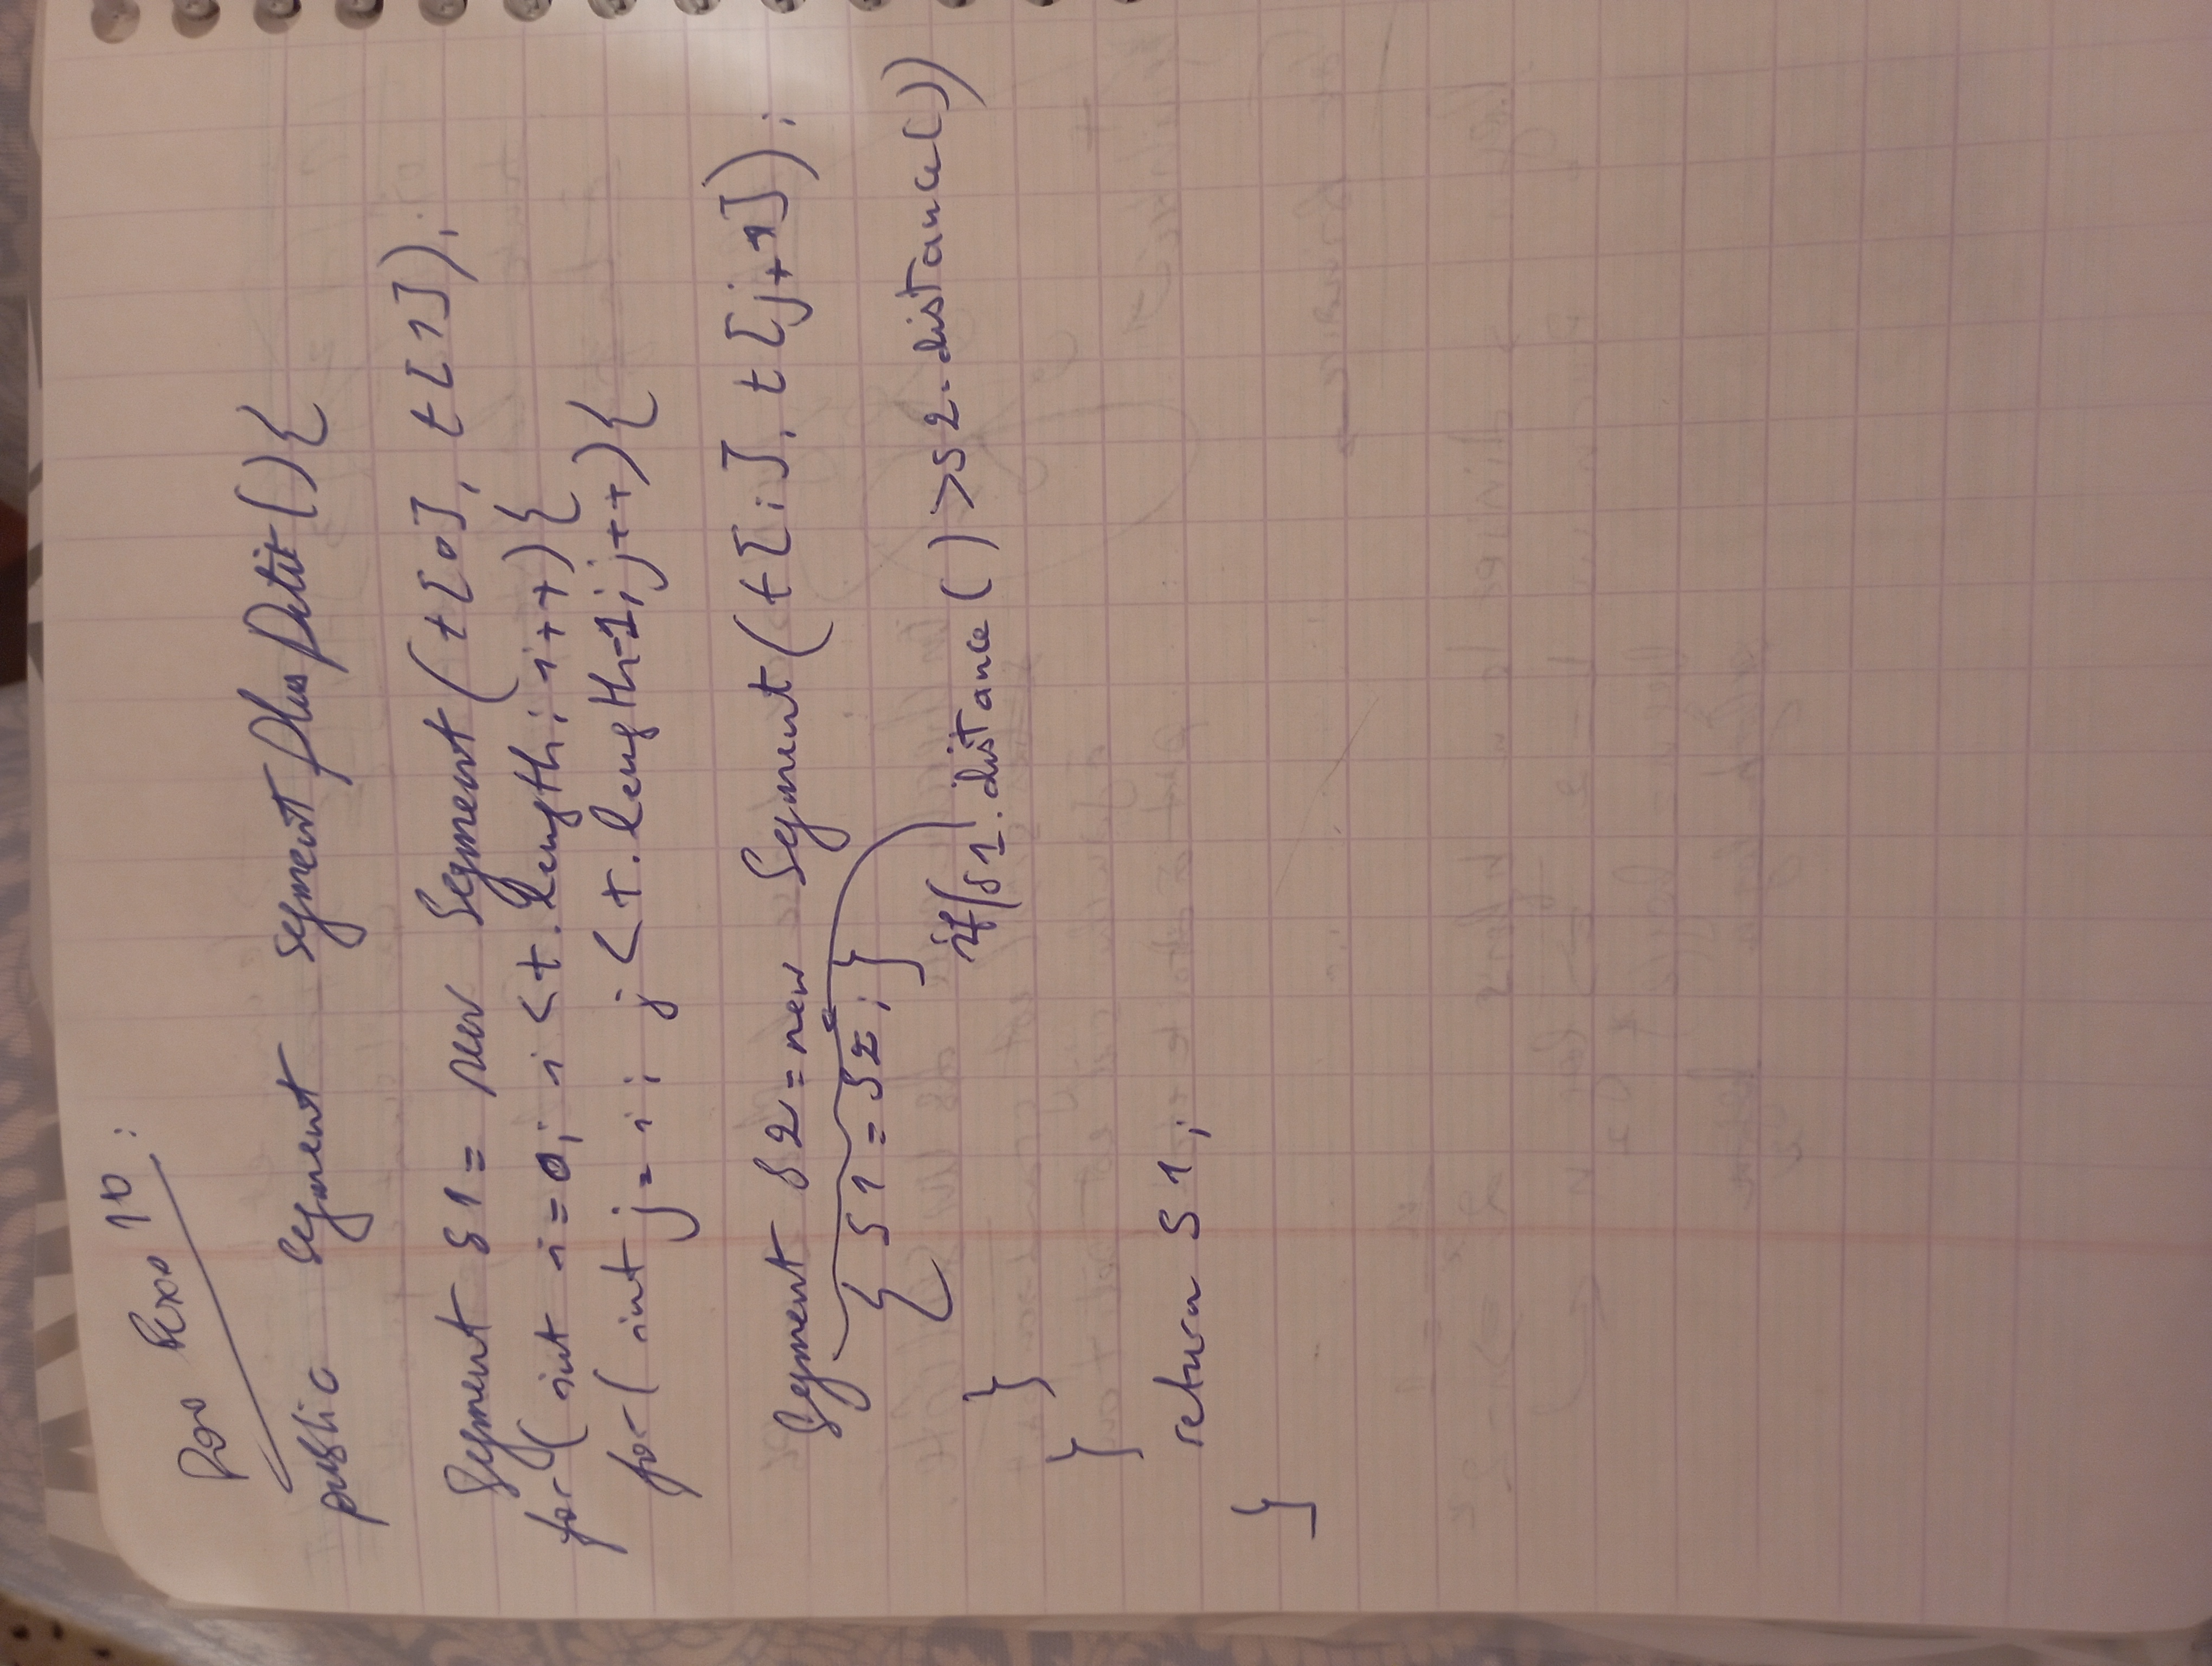 Pour Exos 10 :
public Segment segmentPlusPetit() {
Segment s1 = new Segment(t[0], t[1]);
for( int i=0; i < t.length; i++){
for( int j = i; j < t.length-1; j++){
Segment s2 = new Segment(t[i], t[j+1]);
{ s1 = s2; }
if(s1.distance() > s2.distance())
}
}
return s1;
}